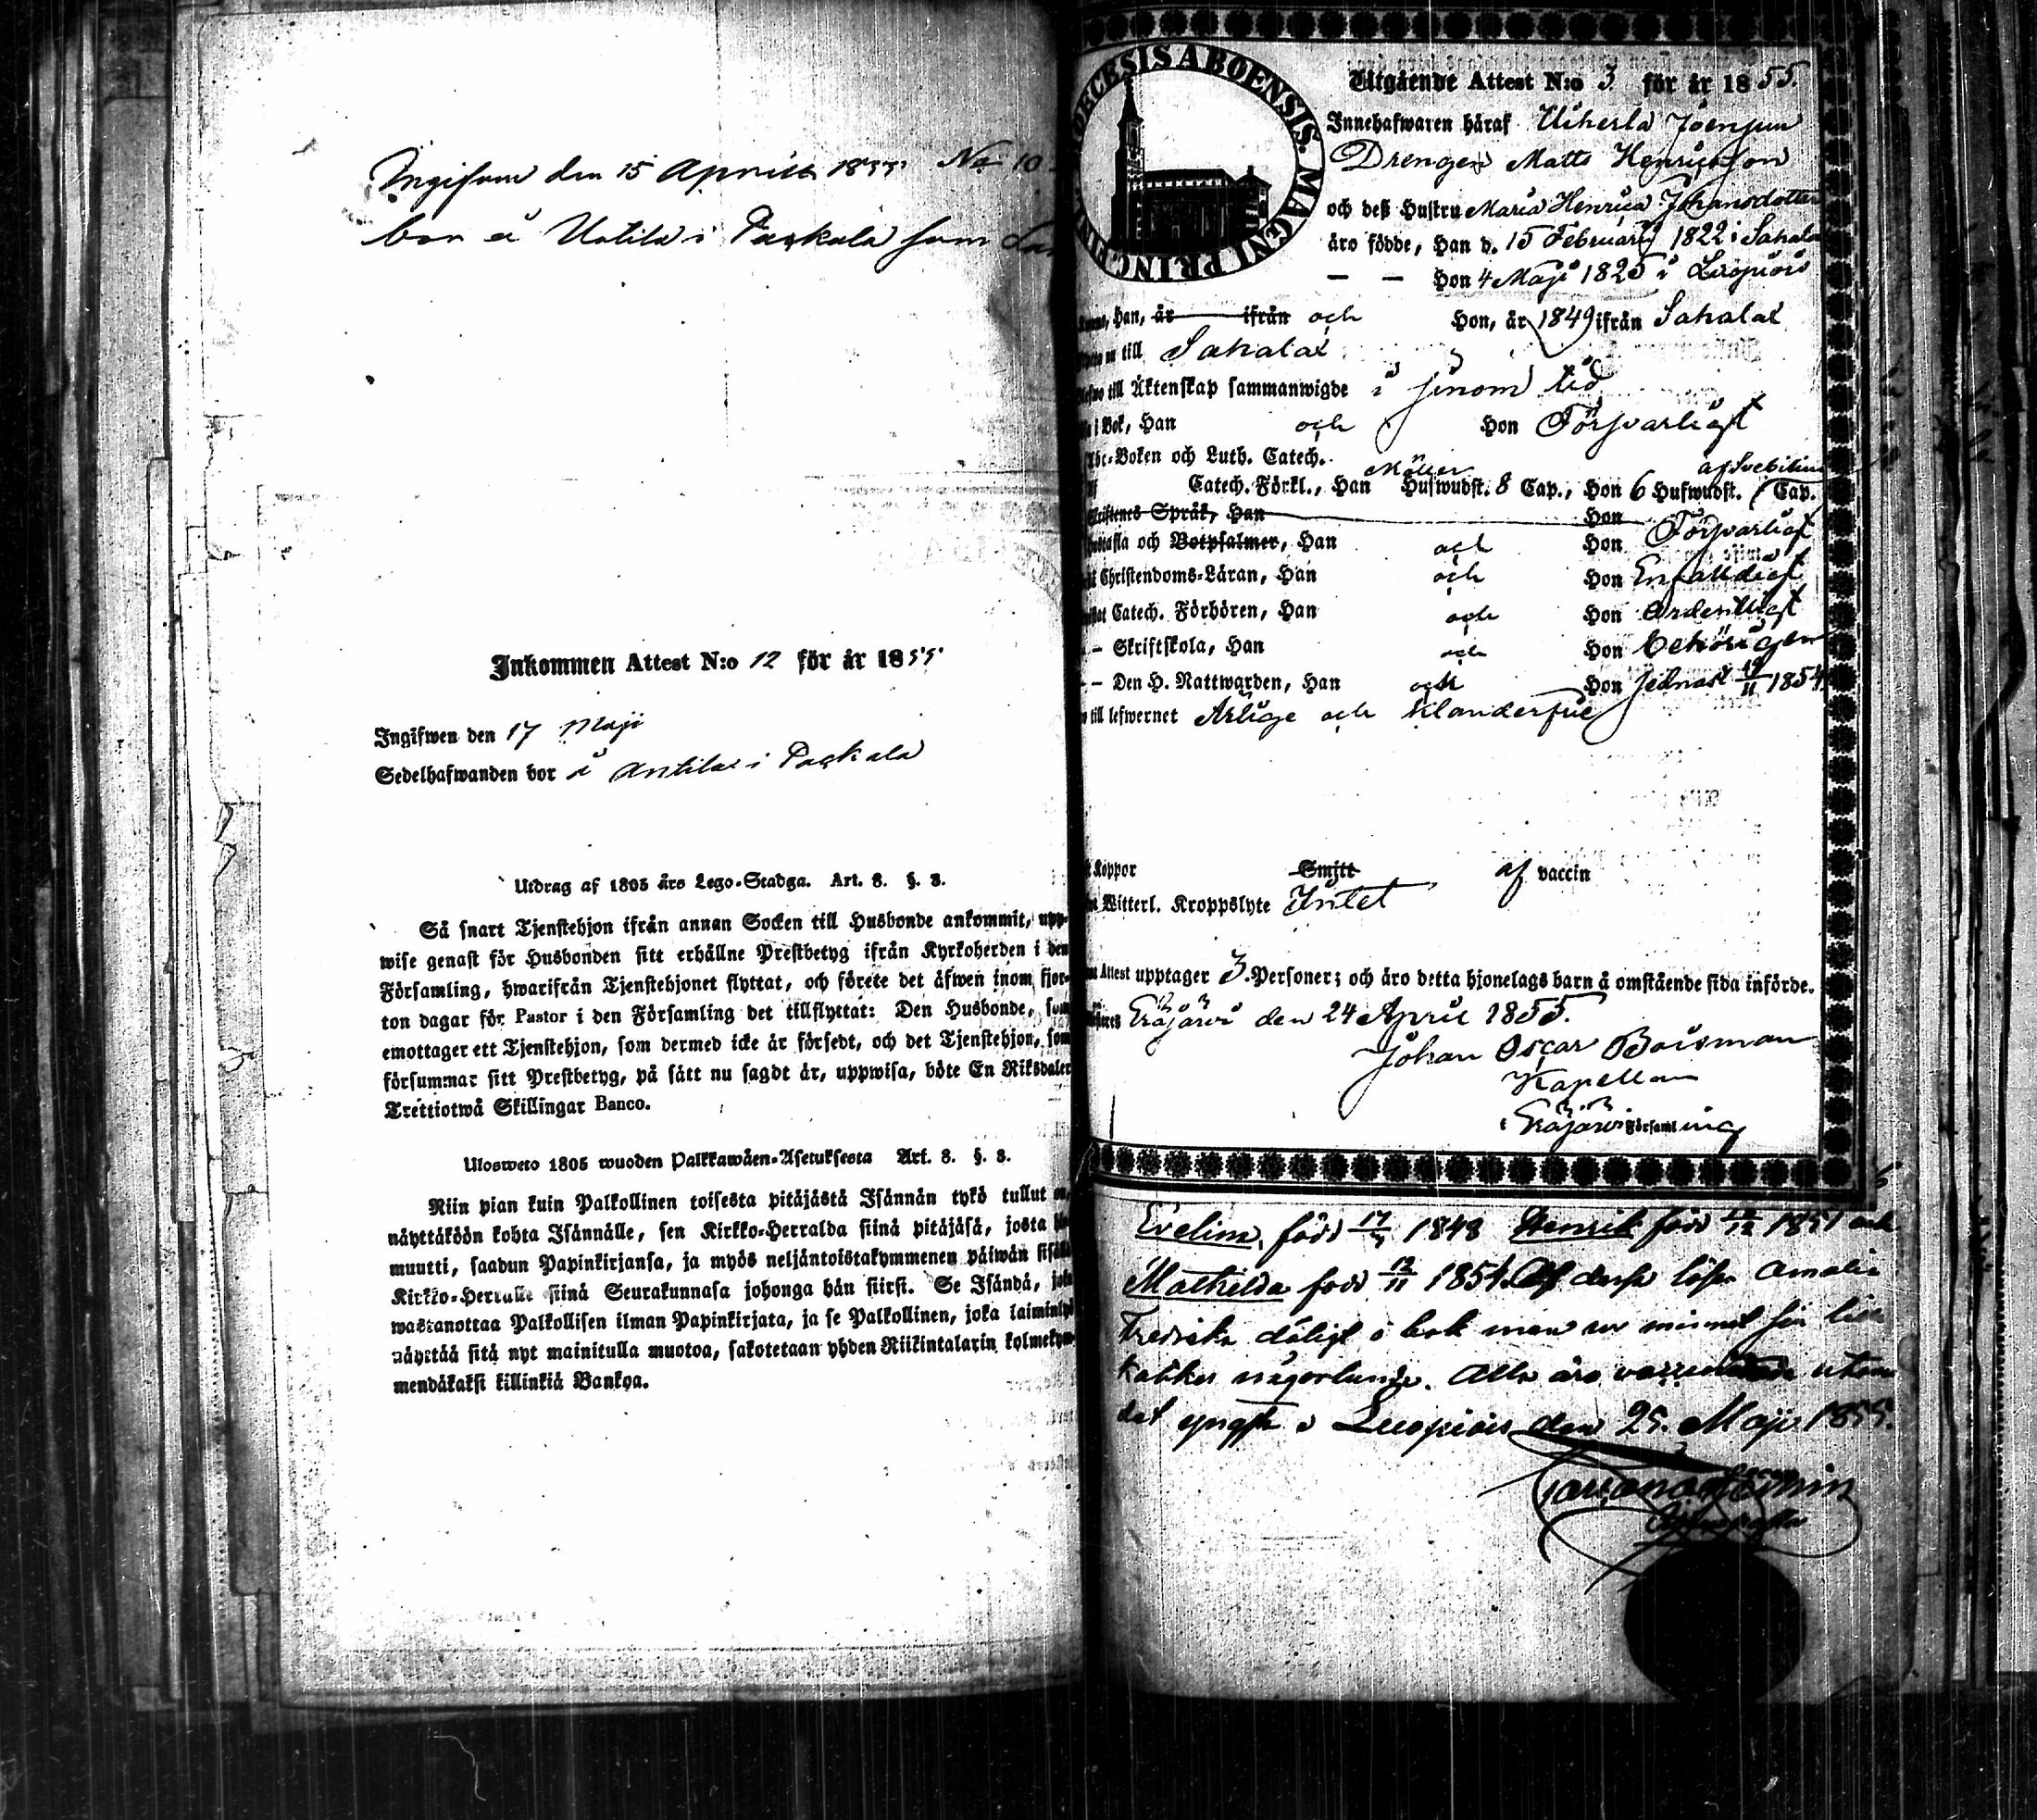 Ingifven den 15 Aprill 1855 No 10
bor å Uotila i Paskala som
Inkommen Attest N:o 12 för år 1855
Ingifwen den 17 Maji
Sedelhafwanden bor å Antila i Paskala
Utdrag af 1805 års Lego-Stadga. Art. 8. §. 3.
Så snart Tjenstehjon ifrån annan Socken till Husbonde ankommit, upp-
wise genast för Husbonden sitt erhållne Prestbetyg ifrån Kyrkoherden i den
Församling, hwarifrån Tjenstehjonet flyttat, och förete det äfwen inom fjor-
ton dagar för Pastor i den Församling det tillflyttat: Den Husbonde, som
emottager ett Tjenstehjon, som dermed icke är försedt, och det Tjenstehjon, som
försummar sitt Prestbetyg, på sätt nu sagdt är, uppwisa, böte En Riksdaler
Trettiotwå Skillingar Banco.
Ulosweto 1805 wuoden Palkkawäen-Asetuksesta Art. 8. §. 3.
Niin pian kuin Palkollinen toisesta pitäjästä Isännän tykö tullut on,
näyttäköön kohta Isännälle, sen Kirkko-Herralda siinä pitäjäsä, josta
muutti, saadun Papinkirjansa, ja myös neljäntoistakymmenen päiwän sisällä
Kirkko-Herralle siinä Seurakunnasa johonga hän siirsi. Se Isändä, joka
wastanottaa Palkollisen ilman Papinkirjata, ja se Palkollinen, joka laiminlyö
näyttää sitä nyt mainitulla muotoa, sakotetaan yhden Riikintalarin kolmekym-
mendäkaksi killinkiä Bankoa.
DIOECESIS ABOENSIS. MAGNI PRINCIP
Utgående Attest N:o 3 för år 1855.
Innehafwaren häraf Uiherla Joensuu
Drengen Matts Henricsson
och deß Hustru Maria Henrica Johansdotter
äro födde, Han d. 15 Februarii 1822 i Sahala
— — Hon 4 Maji 1825 i Luopiois
Han, är ifrån och Hon, är 1849 ifrån Sahalax
till Sahalax
till Äktenskap sammanwigde i sinom tid
i Bok, Han och Hon Försvarligt
Abc-Boken och Luth. Catech.
Möller af Svebilius
Catech. Förkl., Han Hufwudst. 8 Cap., Hon 6 Hufwudst. Cap.
Skriftenes Språk, Han Hon
Hustafla och Botpsalmer, Han och Hon Försvarligt
Christendoms-Läran, Han och Hon Enfalldigt
Catech. Förhören, Han och Hon Ordentligt
— Skriftskola, Han och Hon behörigen
— Den H. Nattwarden, Han och Hon sednast 19/11 1854
till lefwernet Ärlige och klanderfrie
Koppor Smitt af vaccin
Witterl. Kroppslyte Intet
Attest upptager 3. Personer; och äro detta hjonelags barn å omstående sida införde.
Eräjärvi den 24 April 1855.
Johan Oscar Boisman
Kapellan
i Eräjärvi Församling
Evelina, född 1848 Henrik född 1851 och
Mathilda född 1854. Af dessa läser Amalia
Fredrika dåligt i bok men ur minnet sin lilla
katekes någorlunda. Alla äro vaccinerade utom
det yngsta. Luopiois den 25. Maji 1855.